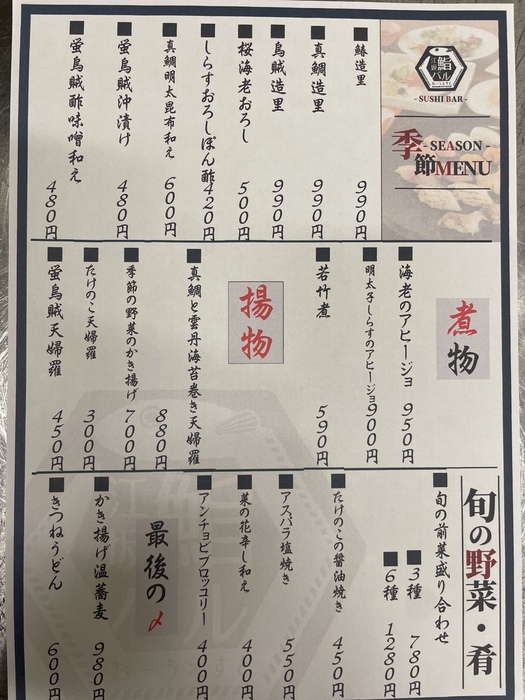 江戸 鮨 バル
- SUSHI BAR -
季節 - SEASON - MENU
■ 鰆造里 990円
■ 真鯛造里 990円
■ 烏賊造里 990円
■ 桜海老おろし 500円
■ しらすおろしぽん酢 420円
■ 真鯛明太昆布和え 600円
■ 蛍烏賊沖漬け 480円
■ 蛍烏賊酢味噌和え 480円
煮物
■ 海老のアヒージョ 950円
■ 明太子しらすのアヒージョ 900円
■ 若竹煮 590円
揚物
■ 真鯛と雲丹海苔巻き天婦羅 880円
■ 季節の野菜のかき揚げ 700円
■ たけのこ天婦羅 300円
■ 蛍烏賊天婦羅 450円
旬の野菜・肴
■ 旬の前菜盛り合わせ
■ 3種 780円
■ 6種 1280円
■ たけのこの醤油焼き 450円
■ アスパラ塩焼き 550円
■ 菜の花辛し和え 400円
■ アンチョビブロッコリー 400円
最後の〆
■ かき揚げ温蕎麦 980円
■ きつねうどん 600円